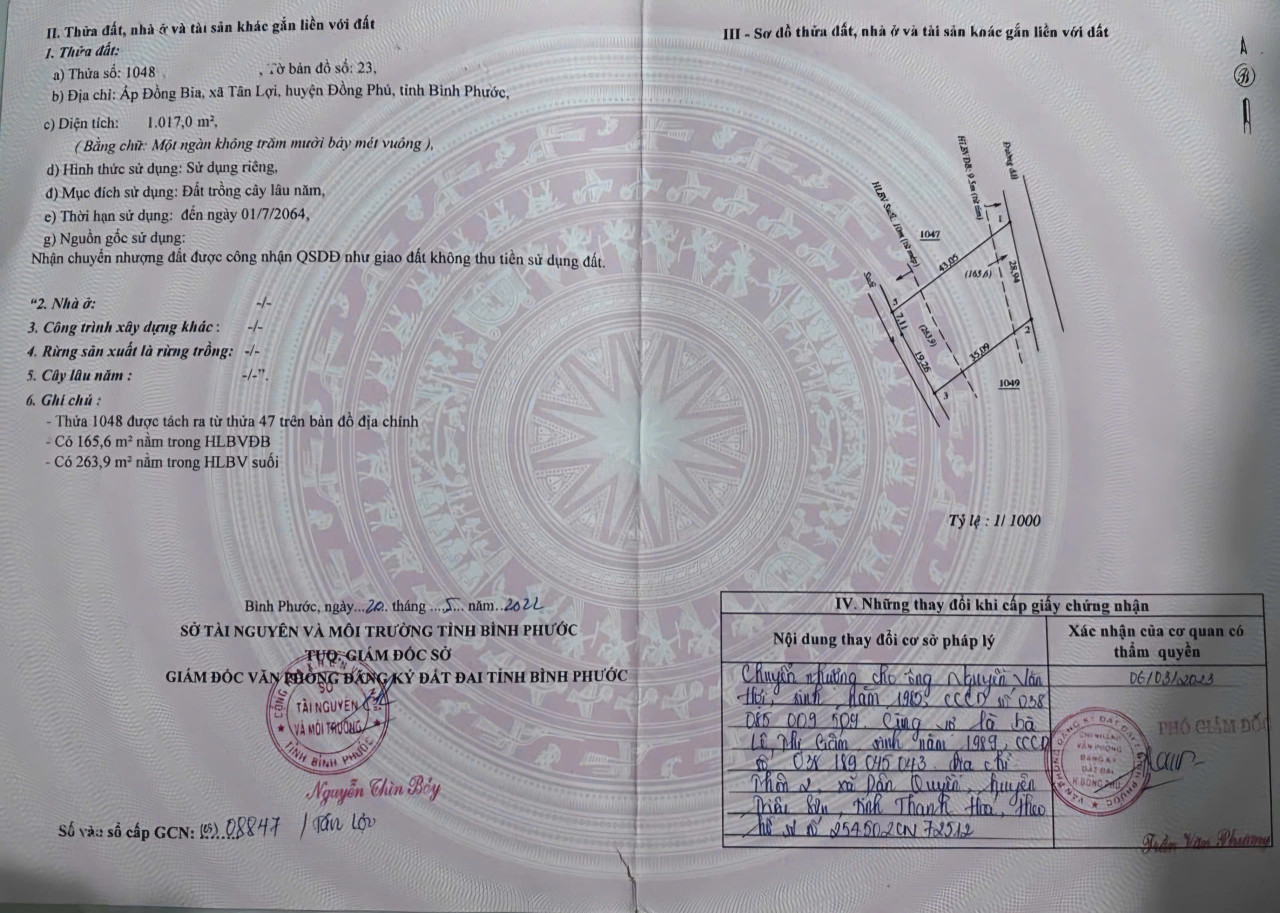 II. Thửa đất, nhà ở và tài sản khác gắn liền với đất
1. Thửa đất:
a) Thửa số: 1048 , Tờ bản đồ số: 23,
b) Địa chỉ: Ấp Đồng Bia, xã Tân Lợi, huyện Đồng Phú, tỉnh Bình Phước,
c) Diện tích: 1.017,0 m²,
( Bằng chữ: Một ngàn không trăm mười bảy mét vuông ),
d) Hình thức sử dụng: Sử dụng riêng,
đ) Mục đích sử dụng: Đất trồng cây lâu năm,
e) Thời hạn sử dụng: đến ngày 01/7/2064,
g) Nguồn gốc sử dụng:
Nhận chuyển nhượng đất được công nhận QSDĐ như giao đất không thu tiền sử dụng đất.
“2. Nhà ở: -/-
3. Công trình xây dựng khác : -/-
4. Rừng sản xuất là rừng trồng: -/-
5. Cây lâu năm : -/-”.
6. Ghi chú :
- Thửa 1048 được tách ra từ thửa 47 trên bản đồ địa chính
- Có 165,6 m² nằm trong HLBVĐB
- Có 263,9 m² nằm trong HLBV suối
Bình Phước, ngày...20. tháng ....5... năm..2022
SỞ TÀI NGUYÊN VÀ MÔI TRƯỜNG TỈNH BÌNH PHƯỚC
TUQ. GIÁM ĐỐC SỞ
GIÁM ĐỐC VĂN PHÒNG ĐĂNG KÝ ĐẤT ĐAI TỈNH BÌNH PHƯỚC
SỞ
TÀI NGUYÊN
VÀ MÔI TRƯỜNG
TỈNH BÌNH PHƯỚC
Nguyễn Thìn Bảy
Số vào sổ cấp GCN: (CS)..08847 / Tân Lợi
III - Sơ đồ thửa đất, nhà ở và tài sản khác gắn liền với đất
B
Đường đất
HLBVĐB: 9.5m (từ tim)
HLBV Suối: 10m (từ mép)
Suối
1047
1
43,05
(165,6)
28,94
5
7,11
(263,9)
19,26
35,09
2
3
1049
Tỷ lệ : 1/ 1000
IV. Những thay đổi khi cấp giấy chứng nhận
Nội dung thay đổi cơ sở pháp lý
Xác nhận của cơ quan có
thẩm quyền
Chuyển nhượng cho ông Nguyễn Văn
Hói, sinh năm 1985, CCCD số 038
085 009 509. Cùng vợ là bà
Lê Thị Gấm sinh năm 1989, CCCD
số 038 189 045 043. Địa chỉ
Thôn 2, xã Dân Quyền, huyện
Triệu Sơn, tỉnh Thanh Hóa, theo
hồ sơ số 254502CN 72512
06/03/2023
PHÓ GIÁM ĐỐC
CHI NHÁNH
VĂN PHÒNG
ĐĂNG KÝ
ĐẤT ĐAI
H. ĐỒNG PHÚ
Trần Văn Phương